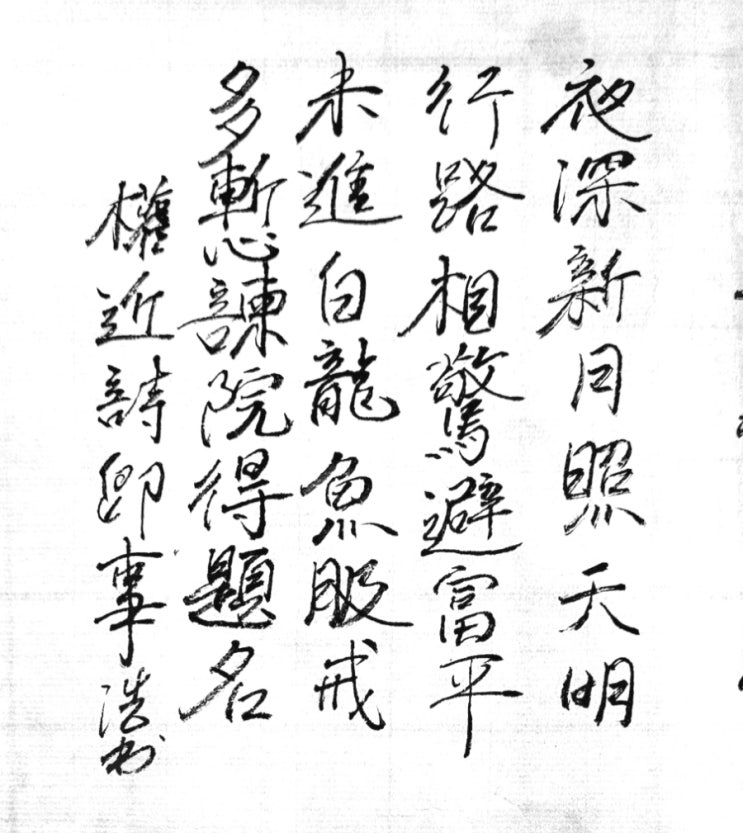 夜深新月照天明
行路相驚避富平
未進白龍魚服戒
多慙諫院得題名
權近詩即事浩書